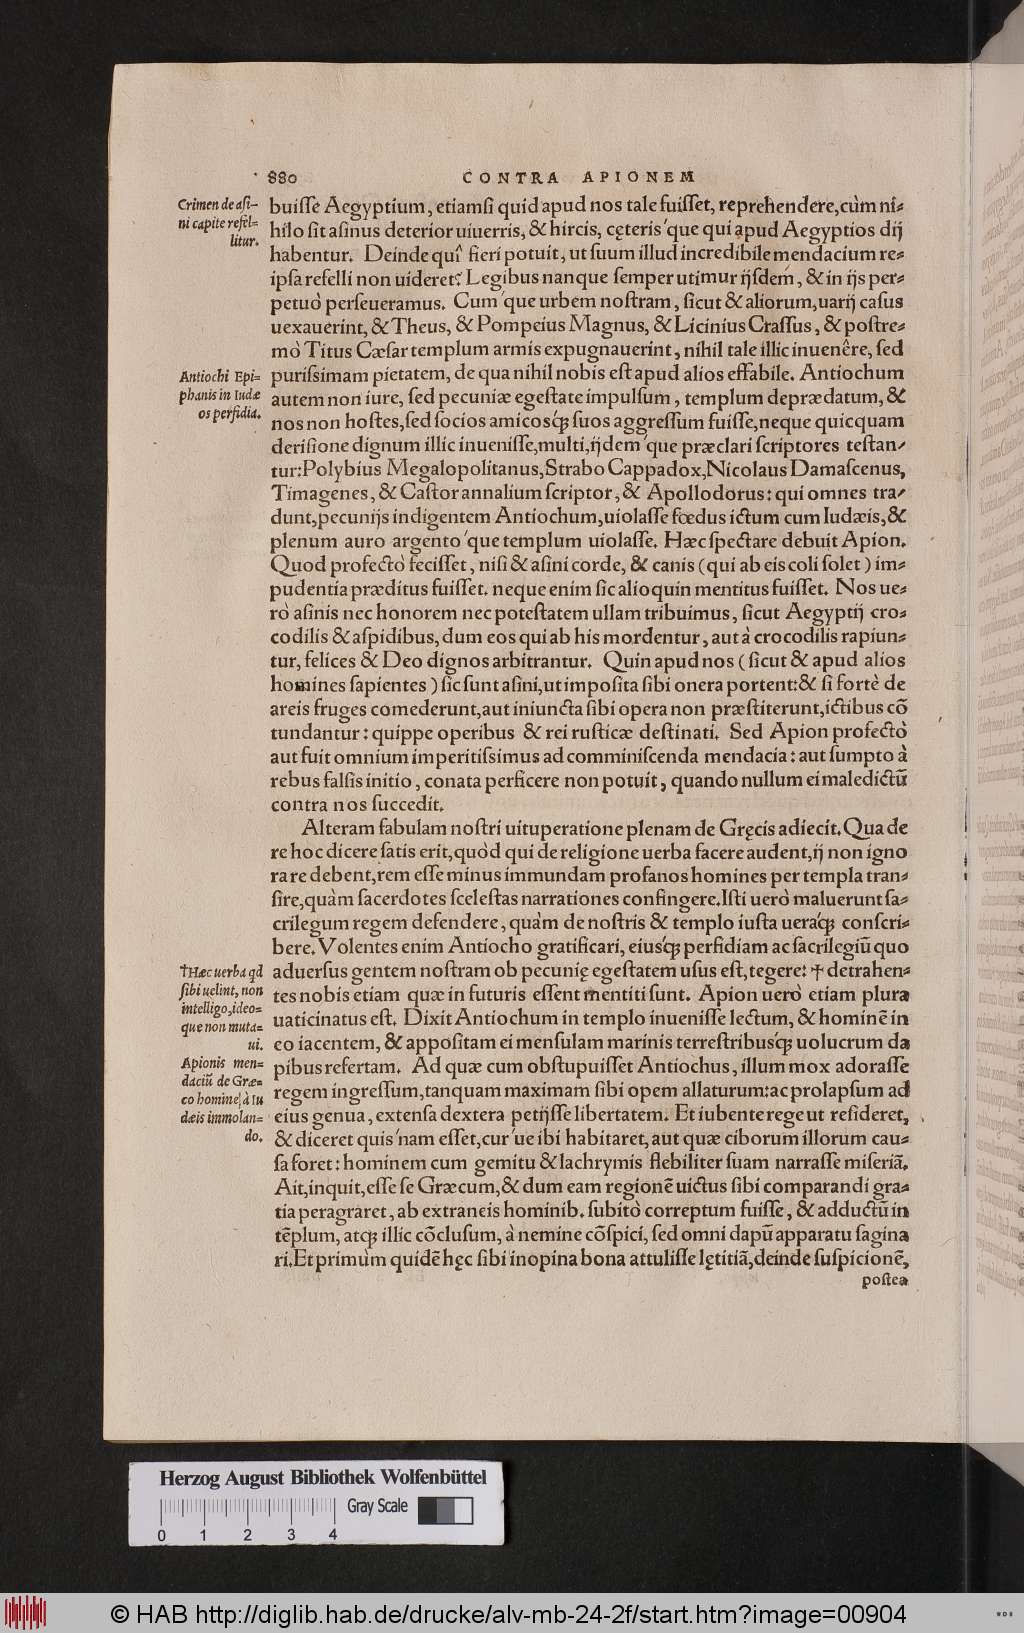 880 CONTRA APIONEM
Crimen de aſi-
ni capite refel-
litur.
buiſſe Aegyptium, etiamſi quid apud nos tale fuiſſet, reprehendere, cùm ni-
hilo ſit aſinus deterior uiuerris, & hircis, cęteris'que qui apud Aegyptios dij
habentur. Deinde quî fieri potuit, ut ſuum illud incredibile mendacium re-
ipſa refelli non uideret? Legibus nanque ſemper utimur ijſdem, & in ijs per-
petuò perſeueramus. Cum'que urbem noſtram, ſicut & aliorum, uarij caſus
uexauerint, & Theus, & Pompeius Magnus, & Licinius Craſſus, & poſtre-
mò Titus Cæſar templum armis expugnauerint, nihil tale illic inuenêre, ſed
Antiochi Epi-
phanis in Iudæ
os perfidia.
puriſsimam pietatem, de qua nihil nobis eſt apud alios effabile. Antiochum
autem non iure, ſed pecuniæ egeſtate impulſum, templum deprædatum, &
nos non hoſtes, ſed ſocios amicosq́; ſuos aggreſſum fuiſſe, neque quicquam
deriſione dignum illic inueniſſe, multi, ijdem'que præclari ſcriptores teſtan-
tur: Polybius Megalopolitanus, Strabo Cappadox, Nicolaus Damaſcenus,
Timagenes, & Caſtor annalium ſcriptor, & Apollodorus: qui omnes tra-
dunt, pecunijs indigentem Antiochum, uiolaſſe fœdus ictum cum Iudæis, &
plenum auro argento'que templum uiolaſſe. Hæc ſpectare debuit Apion.
Quod profectò feciſſet, niſi & aſini corde, & canis (qui ab eis coli ſolet) im-
pudentia præditus fuiſſet. neque enim ſic alioquin mentitus fuiſſet. Nos ue-
rò aſinis nec honorem nec poteſtatem ullam tribuimus, ſicut Aegyptij cro-
codilis & aſpidibus, dum eos qui ab his mordentur, aut à crocodilis rapiun-
tur, felices & Deo dignos arbitrantur. Quin apud nos (ſicut & apud alios
homines ſapientes) ſic ſunt aſini, ut impoſita ſibi onera portent: & ſi fortè de
areis fruges comederunt, aut iniuncta ſibi opera non præſtiterunt, ictibus cō
tundantur: quippe operibus & rei ruſticæ deſtinati. Sed Apion profectò
aut fuit omnium imperitiſsimus ad comminiſcenda mendacia: aut ſumpto à
rebus falſis initio, conata perficere non potuit, quando nullum ei maledictū
contra nos ſuccedit.
Alteram fabulam noſtri uituperatione plenam de Gręcis adiecit. Qua de
re hoc dicere ſatis erit, quòd qui de religione uerba facere audent, ij non igno
rare debent, rem eſſe minus immundam profanos homines per templa tran-
ſire, quàm ſacerdotes ſceleſtas narrationes confingere. Iſti uerò maluerunt ſa-
crilegum regem defendere, quàm de noſtris & templo iuſta ueraq́; conſcri-
bere. Volentes enim Antiocho gratificari, eiusq́; perfidiam ac ſacrilegiū quo
†Hæc uerba qd
ſibi uelint, non
intelligo, ideo-
que non muta-
ui.
Apionis men-
daciū de Græ-
co homine, à Iu
dæis immolan-
do.
aduerſus gentem noſtram ob pecunię egeſtatem uſus eſt, tegere: † detrahen-
tes nobis etiam quæ in futuris eſſent mentiti ſunt. Apion uerò etiam plura
uaticinatus eſt. Dixit Antiochum in templo inueniſſe lectum, & hominē in
eo iacentem, & appoſitam ei menſulam marinis terreſtribusq́; uolucrum da
pibus refertam. Ad quæ cum obſtupuiſſet Antiochus, illum mox adoraſſe
regem ingreſſum, tanquam maximam ſibi opem allaturum: ac prolapſum ad
eius genua, extenſa dextera petijſſe libertatem. Et iubente rege ut reſideret,
& diceret quis'nam eſſet, cur'ue ibi habitaret, aut quæ ciborum illorum cau-
ſa foret: hominem cum gemitu & lachrymis flebiliter ſuam narraſſe miſeriā.
Ait, inquit, eſſe ſe Græcum, & dum eam regionē uictus ſibi comparandi gra-
tia peragraret, ab extraneis hominib. ſubitò correptum fuiſſe, & adductū in
tēplum, atq; illic cōcluſum, à nemine cōſpici, ſed omni dapū apparatu ſagina
ri. Et primùm quidē hęc ſibi inopina bona attuliſſe lętitiā, deinde ſuſpicionē,
poſtea
Herzog August Bibliothek Wolfenbüttel
Gray Scale
0 1 2 3 4
© HAB http://diglib.hab.de/drucke/alv-mb-24-2f/start.htm?image=00904